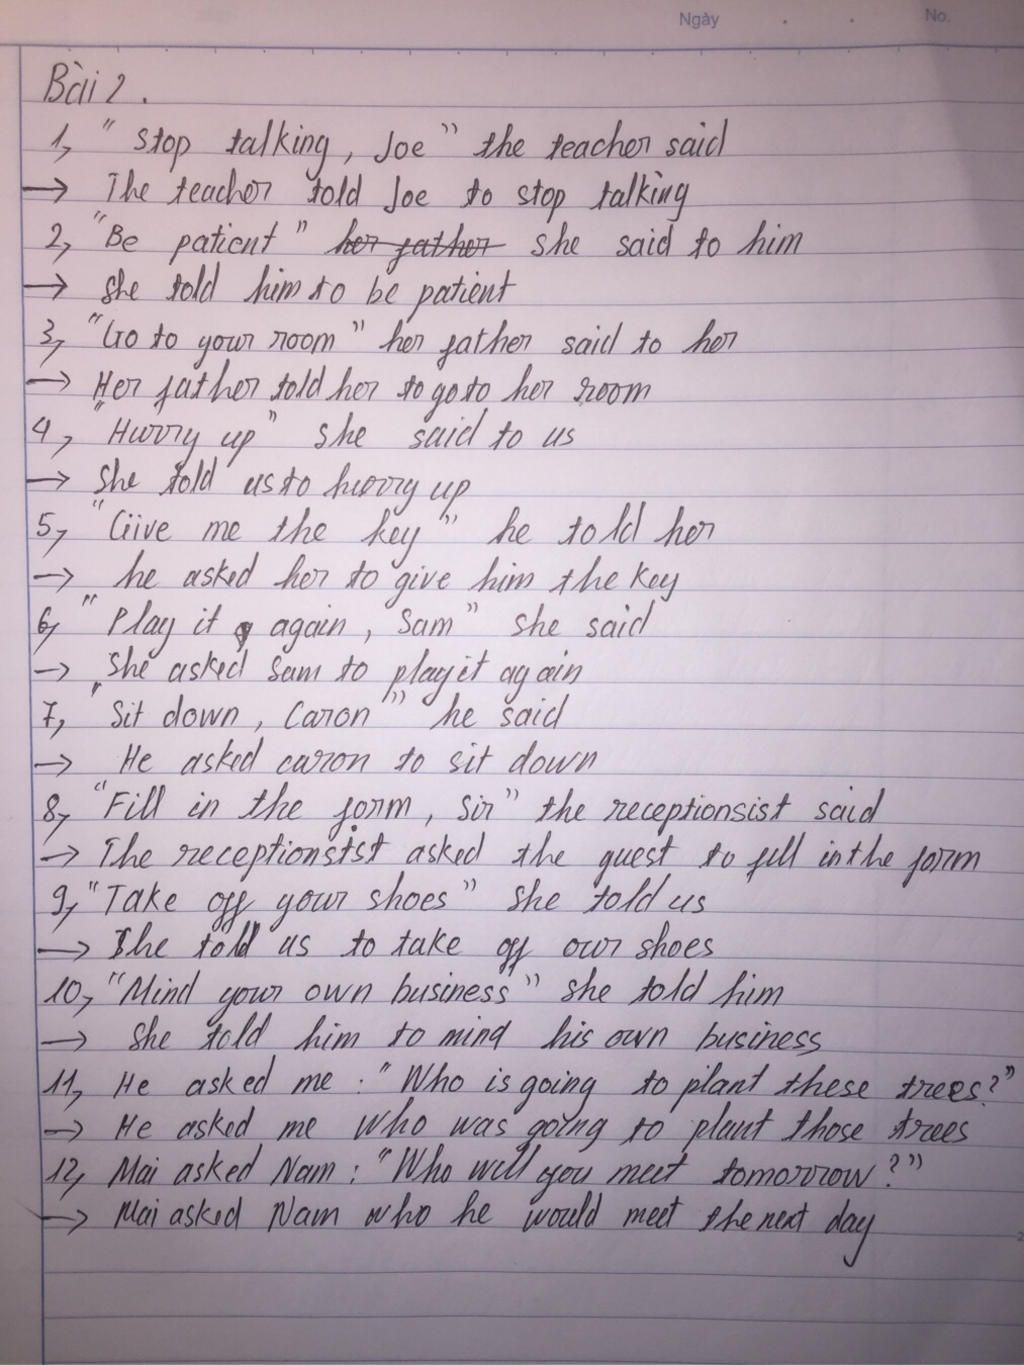 Ngày . . No.
Bài 2.
1, "Stop talking, Joe" the teacher said
→ The teacher told Joe to stop talking
2, "Be patient" her father she said to him
→ She told him to be patient
3, "Go to your room" her father said to her
→ Her father told her to go to her room
4, "Hurry up" she said to us
→ She told us to hurry up
5, "Give me the key" he told her
→ he asked her to give him the key
6, "Play it again, Sam" she said
→ She asked Sam to play it again
7, "Sit down, Caron" he said
→ He asked caron to sit down
8, "Fill in the form, Sir" the receptionsist said
→ The receptionsist asked the guest to fill in the form
9, "Take off your shoes" She told us
→ She told us to take off our shoes
10, "Mind your own business" she told him
→ She told him to mind his own business
11, He asked me : "Who is going to plant these trees?"
→ He asked me who was going to plant those trees
12, Mai asked Nam : "Who will you meet tomorrow?"
→ Mai asked Nam who he would meet the next day